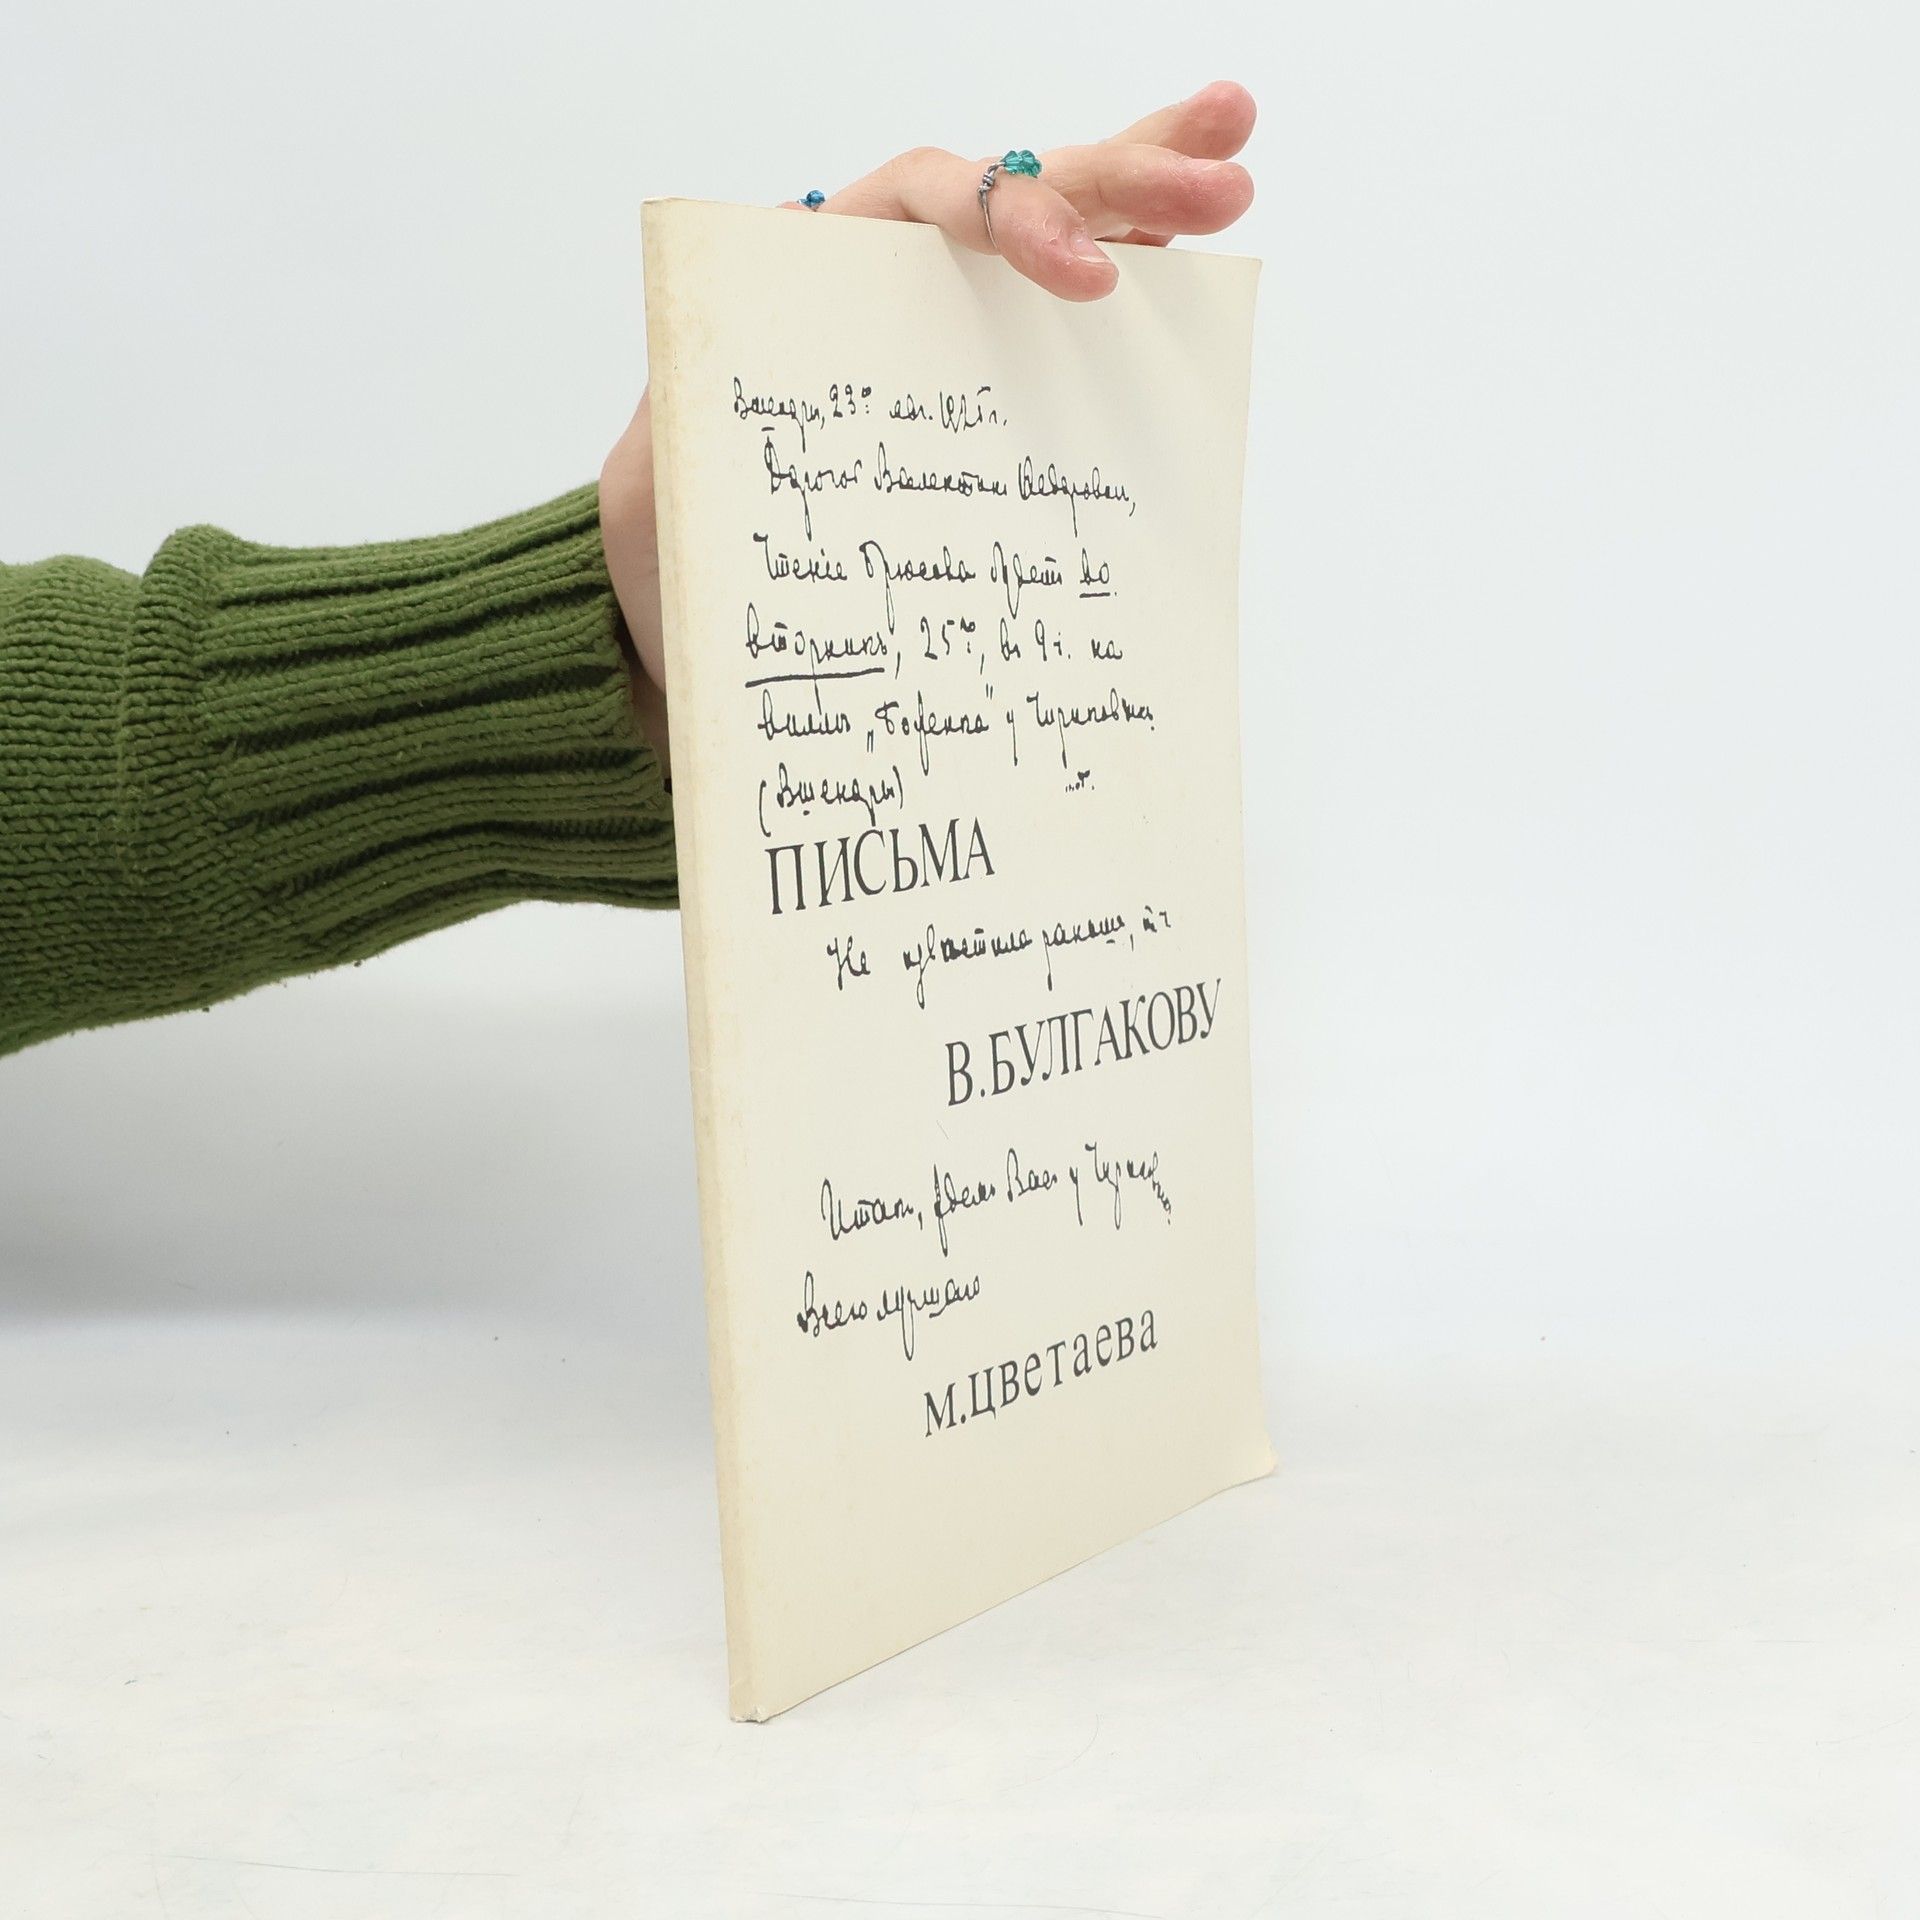 Вшеноры, 23го авг. 1925 г.
Дорогой Валентин Федорович,
Чтеніе Брюсова будетъ во
вторникъ, 25го, въ 9 ч. на
виллѣ „Боженка" у Чириковыхъ
(Вшеноры)
ПИСЬМА
Не извѣстила раньше, т. ч.
В.БУЛГАКОВУ
Итакъ, ждемъ Васъ у
Всего лучшаго
М.Цветаева